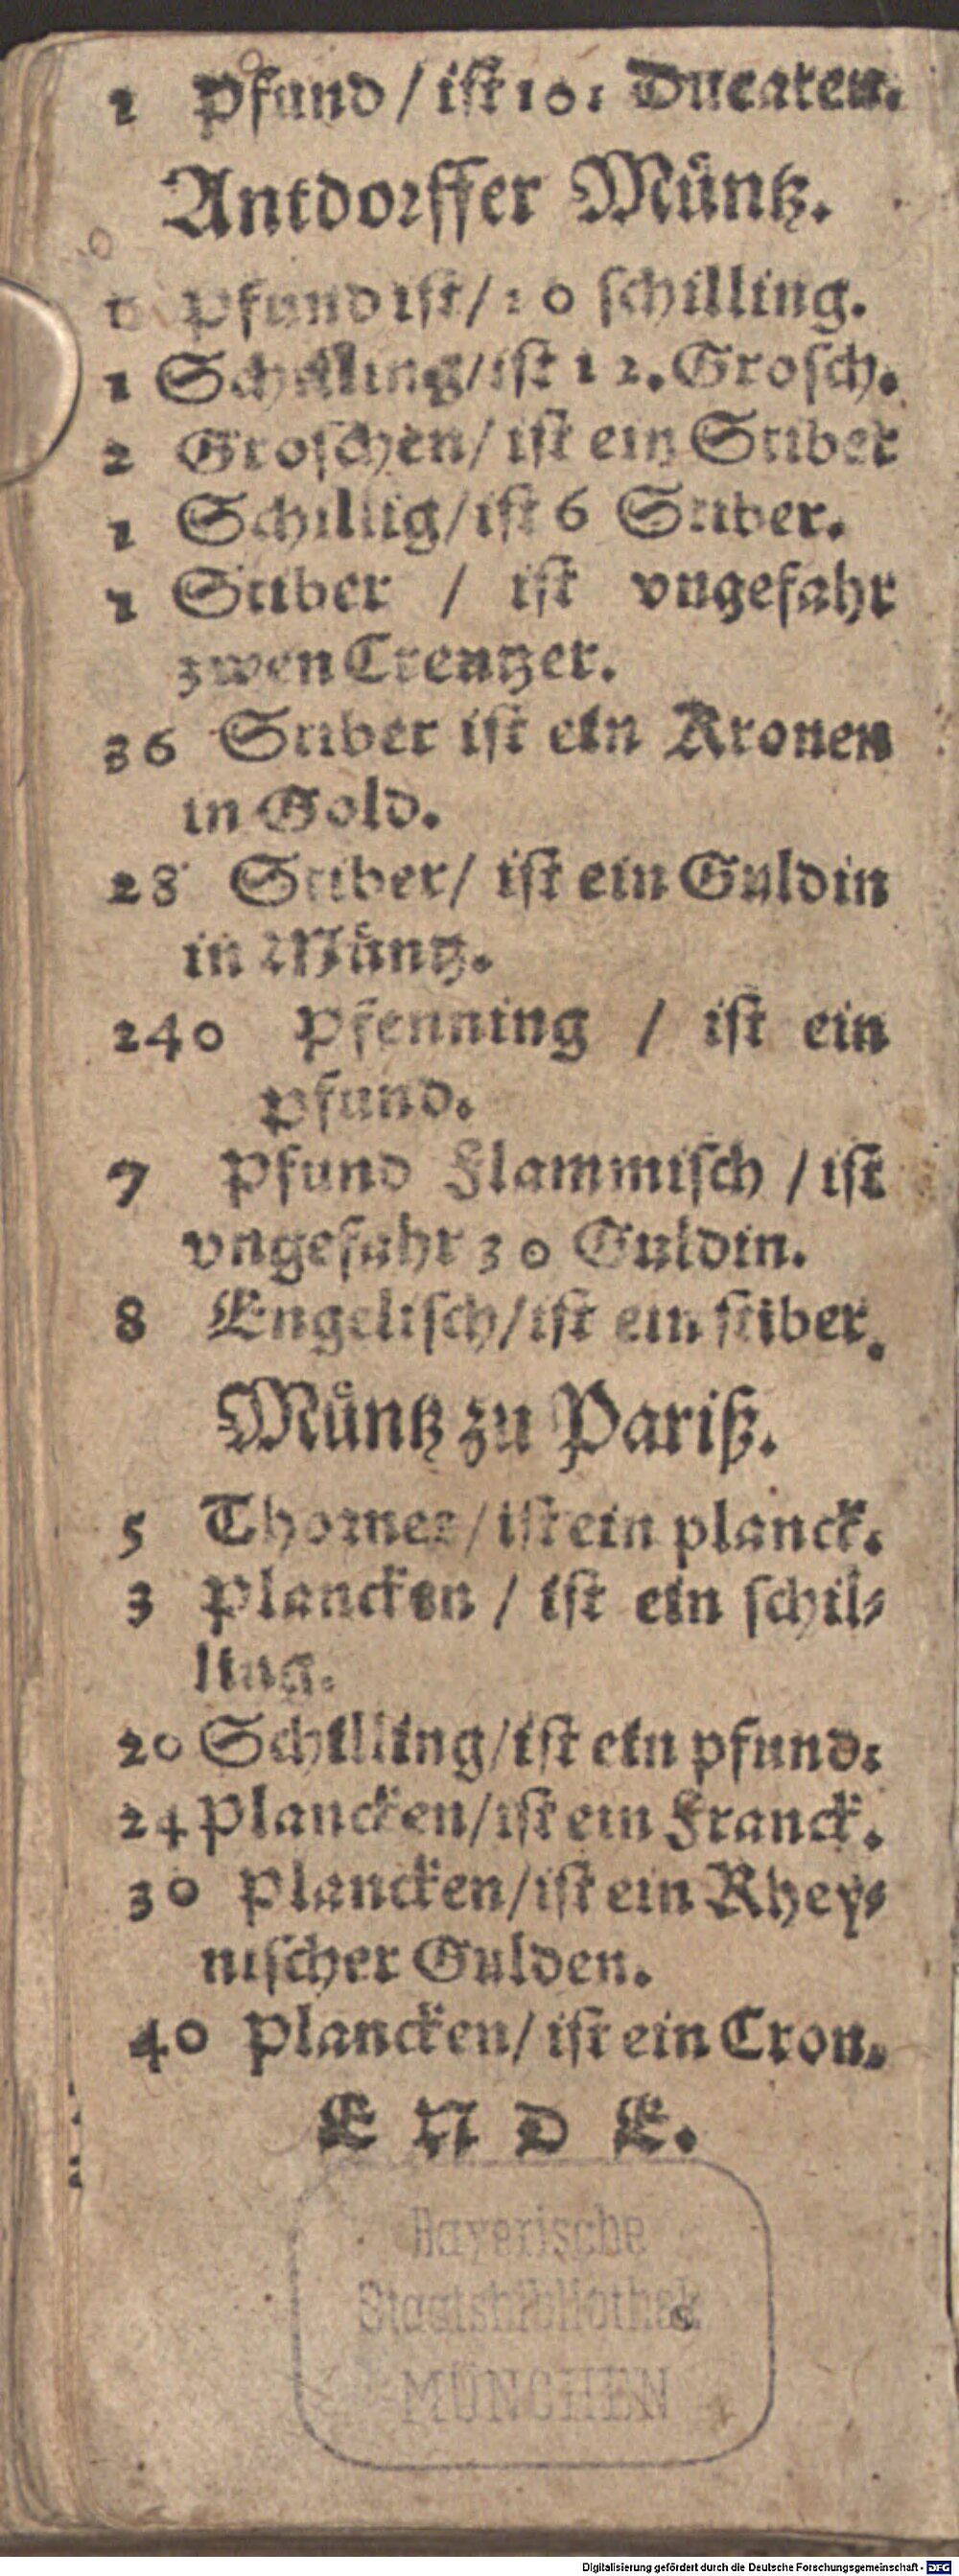 1 Pfund / iſt 10: Ducaten.
Antdorffer Muͤntz.
1 Pfund iſt / 20 ſchilling.
1 Schilling / iſt 12. Groſch.
2 Groſchen / iſt ein Stiber
1 Schillig / iſt 6 Stiber.
1 Stiber / iſt vngefahr
zwen Creutzer.
36 Stiber iſt ein Kronen
in Gold.
28 Stiber / iſt ein Guldin
in Muͤntz.
240 Pfenning / iſt ein
pfund.
7 Pfund Flammiſch / iſt
vngefahr 30 Guldin.
8 Engeliſch / iſt ein ſtiber.
Muͤntz zu Pariß.
5 Thorner / iſt ein planck.
3 Plancken / iſt ein ſchil⸗
ling.
20 Schilling / iſt ein pfund:
24 Plancken / iſt ein Franck.
30 Plancken / iſt ein Rhey⸗
niſcher Gulden.
40 Plancken / iſt ein Cron.
E N D E.
Bayerische
Staatsbibliothek
MÜNCHEN
Digitalisierung gefördert durch die Deutsche Forschungsgemeinschaft - DFG